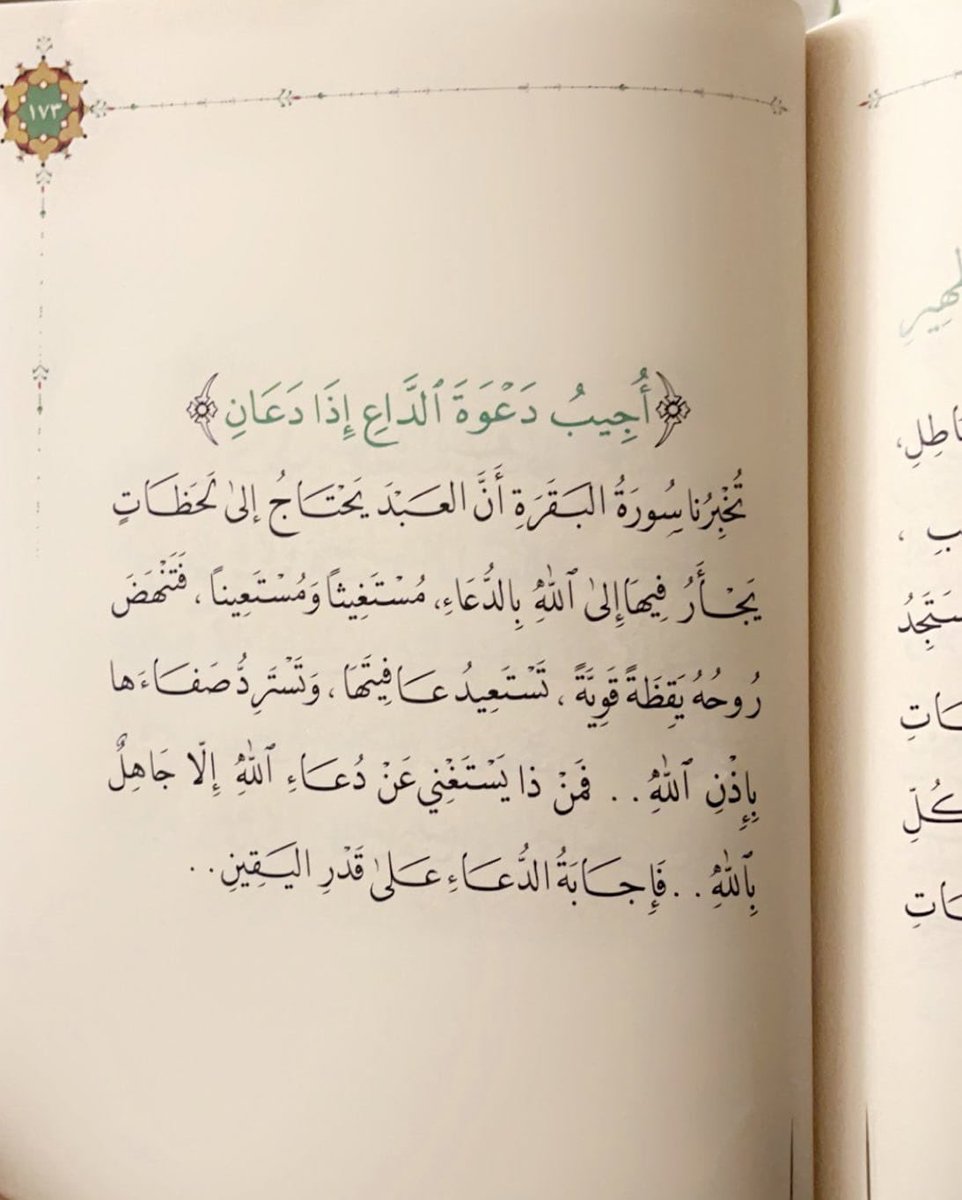 ١٧٣
﴿أُجِيبُ دَعْوَةَ ٱلدَّاعِ إِذَا دَعَانِ﴾
تُخْبِرُنا سِورَةُ الْبَقَرَةِ أَنَّ العَبْدَ يَحْتَاجُ إلىٰ لَحَظَاتٍ
يَجْأَرُ فِيهَا إِلىٰ ٱللَّهِ بِالدُّعَاءِ، مُسْتَغِيثاً وَمُسْتَعِيناً، فَتَنْهَضَ
رُوحُهُ يَقِظَةً قَوِيَّةً، تَسْتَعِيدُ عَافِيتَهَا، وَتَسْتَرِدُّ صَفَاءَها
بِإِذْنِ ٱللَّهِ.. فَمَنْ ذا يَسْتَغْنِي عَنْ دُعَاءِ ٱللَّهِ إِلّا جَاهِلٌ
بِٱللَّهِ.. فَإِجَابَةُ الدُّعَاءِ عَلىٰ قَدْرِ اليَقِينِ..